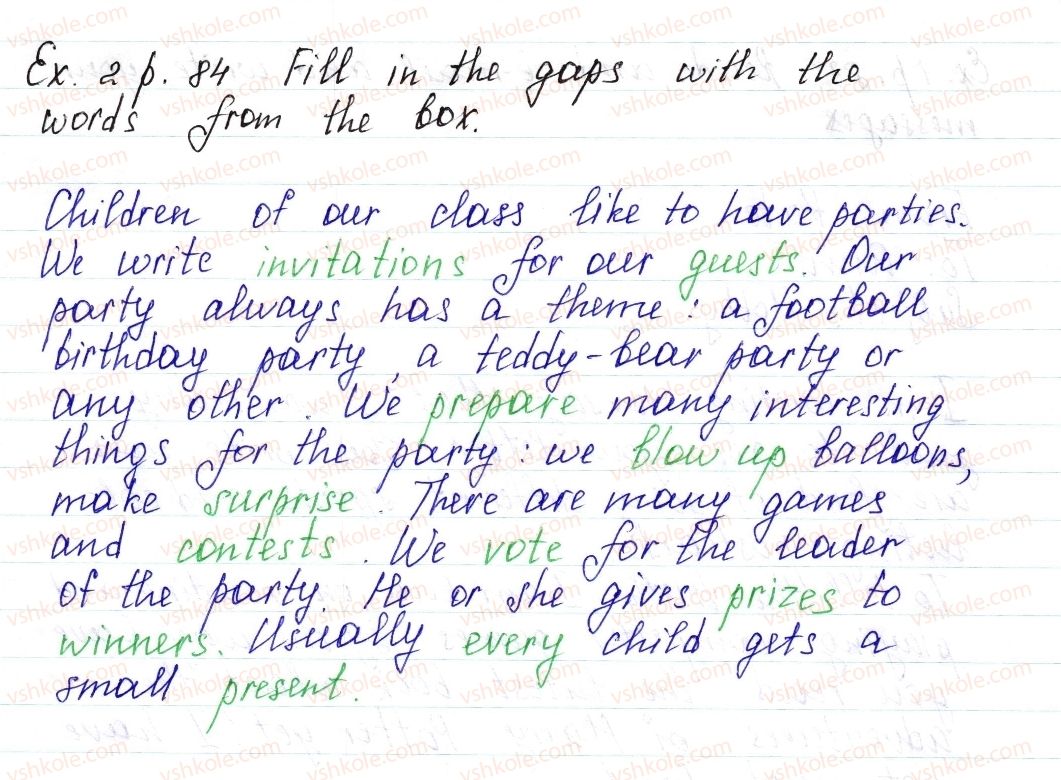 Ex. 2 p. 84 Fill in the gaps with the
words from the box.
Children of our class like to have parties.
We write invitations for our guests. Our
party always has a theme: a football
birthday party, a teddy-bear party or
any other. We prepare many interesting
things for the party: we blow up balloons,
make surprise. There are many games
and contests. We vote for the leader
of the party. He or she gives prizes to
winners. Usually every child gets a
small present.